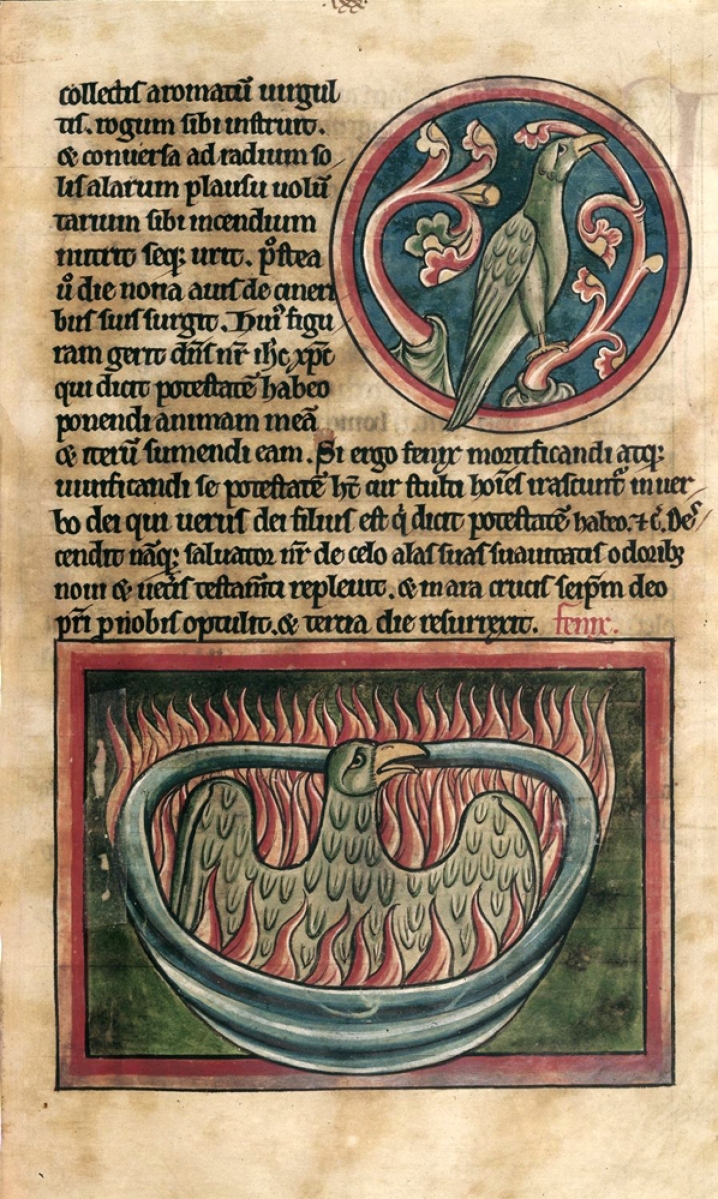 collectis aromatū uirgul
tis. rogum sibi instruit.
& conuersa ad radium so
lis alarum plausu uolū
tarium sibi incendium
nutrit seq; urit. p̾ostea
u̾ die nona auis de cineri
bus suis surgit. Hui᾽ figu
ram gerit dn̄s nr̄ ih̄c xp̄c
qui dicit potestatē habeo
ponendi animam meā
& iterū sumendi eam. Si ergo fenix mortificandi atq;
uiuificandi se potestatē ht̄ cur stulti hoīes irascunt᾽ in uer
bo dei qui uerus dei filius est q̇ dicit potestatē habeo. ⁊ c̄. Des
cendit nāq; saluator nr̄ de celo alas suas suauitatis odorib;
noui & uet̾is testam̄ti repleuit. & in ara crucis seip̄m deo
pr̄i p nobis optulit. & tercia die resurrexit. fenix.